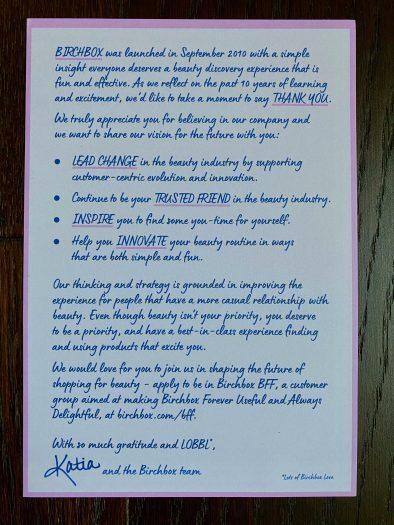 BIRCHBOX was launched in September 2010 with a simple
insight everyone deserves a beauty discovery experience that is
fun and effective. As we reflect on the past 10 years of learning
and excitement, we'd like to take a moment to say THANK YOU.
We truly appreciate you for believing in our company and
we want to share our vision for the future with you:
• LEAD CHANGE in the beauty industry by supporting
customer-centric evolution and innovation.
• Continue to be your TRUSTED FRIEND in the beauty industry.
• INSPIRE you to find some you-time for yourself.
• Help you INNOVATE your beauty routine in ways
that are both simple and fun.
Our thinking and strategy is grounded in improving the
experience for people that have a more casual relationship with
beauty. Even though beauty isn't your priority, you deserve
to be a priority, and have a best-in-class experience finding
and using products that excite you.
We would love for you to join us in shaping the future of
shopping for beauty - apply to be in Birchbox BFF, a customer
group aimed at making Birchbox Forever Useful and Always
Delightful, at birchbox.com/bff.
With so much gratitude and LOBBL*,
Katia and the Birchbox team
*Lots of Birchbox Love